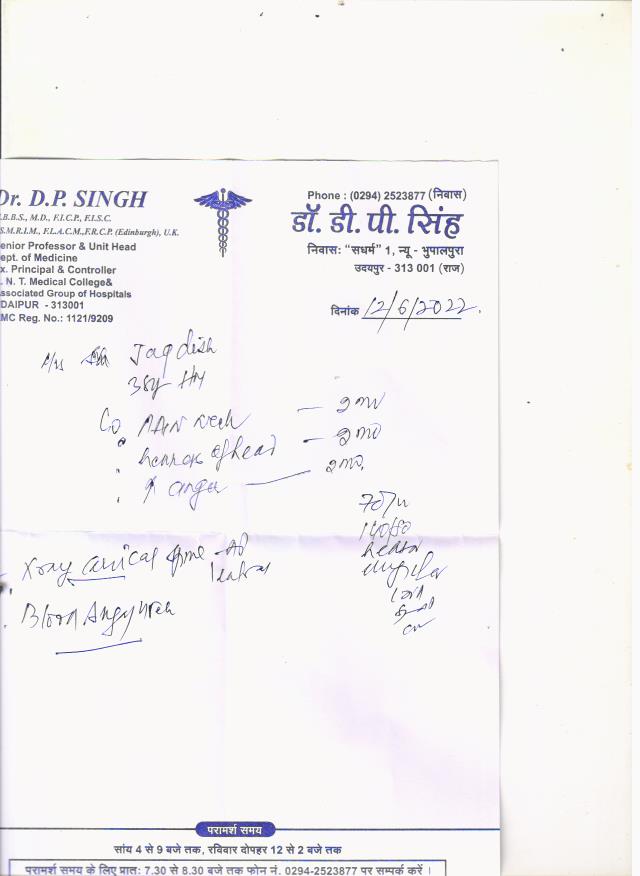 Dr. D.P. SINGH
.B.B.S., M.D., F.I.C.P., F.I.S.C.
S.M.R.I.M., F.L.A.C.M.,F.R.C.P. (Edinburgh), U.K.
enior Professor & Unit Head
ept. of Medicine
x. Principal & Controller
. N. T. Medical College&
ssociated Group of Hospitals
DAIPUR - 313001
MC Reg. No.: 1121/9209
Phone : (0294) 2523877 (निवास)
डॉ. डी. पी. सिंह
निवास: “सधर्म” 1, न्यू - भुपालपुरा
उदयपुर - 313 001 (राज)
दिनांक 12/6/2022.
Jagdish
38y
C/o Pain neck — 2 mo
of head — 2 mo
anger — 2 mo.
70/m
Xray cervical spine - AP
Lateral
Blood
परामर्श समय
सांय 4 से 9 बजे तक, रविवार दोपहर 12 से 2 बजे तक
परामर्श समय के लिए प्रात: 7.30 से 8.30 बजे तक फोन नं. 0294-2523877 पर सम्पर्क करें ।